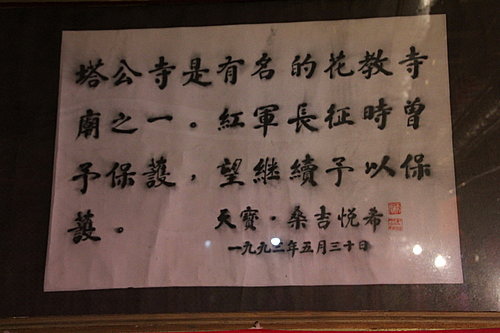 塔公寺是有名的花教寺
廟之一。紅軍長征時曾
予保護，望繼續予以保
護。
天寶·桑吉悅希
一九九二年五月三十日